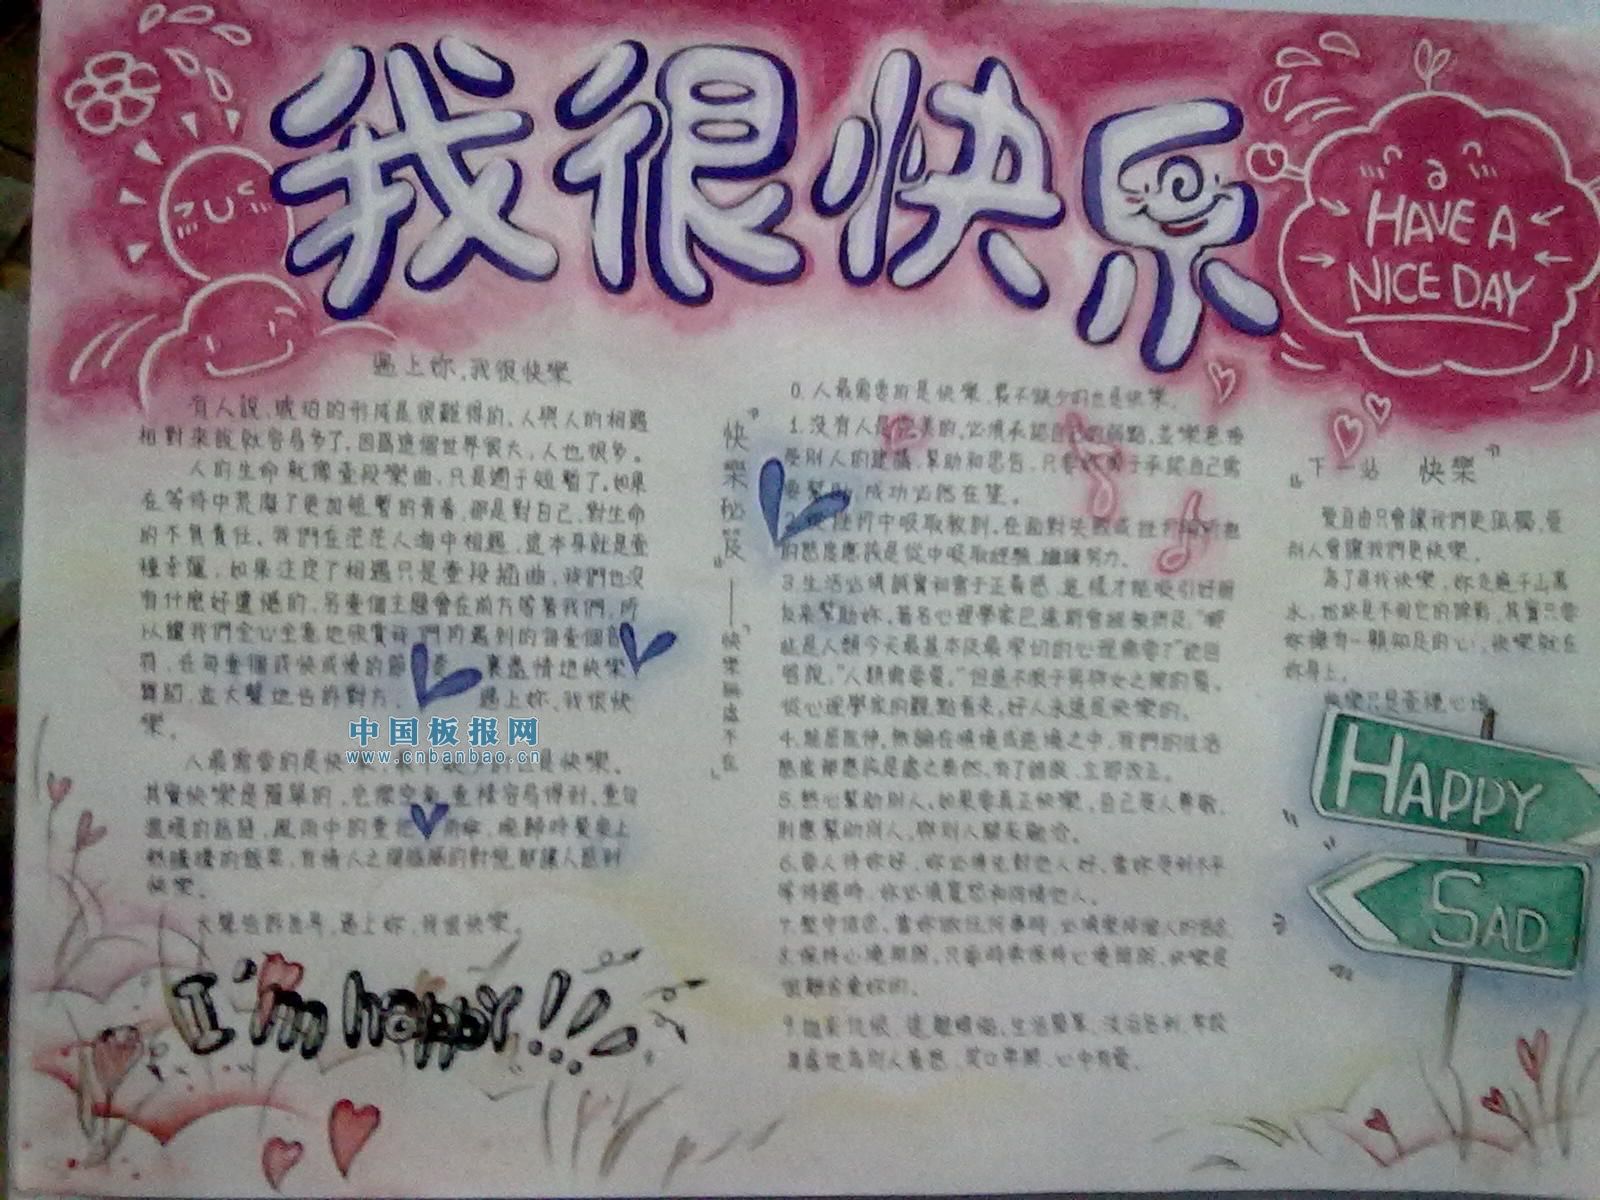 我很快乐
HAVE A
NICE DAY
遇上妳,我很快樂
有人說,琥珀的形成是很難得的,人與人的相遇
相對來說就容易多了,因為這個世界很大,人也很多。
人的生命就像壹段樂曲,只是過于短暫了,如果
在等待中荒廢了更加短暫的青春,那是對自己、對生命
的不負責任。我們在茫茫人海中相遇,這本身就是壹
種幸運,如果注定了相遇只是壹段插曲,我們也沒
有什麼好遺憾的,另壹個主題會在前方等著我們,所
以讓我們全心全意地欣賞我們所遇到的每壹個音
符,在每壹個或快或慢的節奏裏盡情地快樂
舞蹈,並大聲地告訴對方,遇上妳,我很快
樂。
人最需要的是快樂,
其實快樂是簡單的,它像空氣壹樣容易得到,壹句
溫暖的話語,風雨中的壹把雨傘,晚歸時餐桌上
熱騰騰的飯菜,有情人之間
快樂。
大聲告訴世界,遇上妳,我很快樂。
I'm happy!!!
中国板报网
www.cnbanbao.cn
『快樂秘笈』——『快樂無處不在』
0.人最需要的是快樂,最不缺少的也是快樂。
1.沒有人是完美的,必須承認自己的弱點,並樂意接
受別人的建議、幫助和忠告,只要妳勇于承認自己需
要幫助,成功必然在望。
2.從挫折中吸取教訓,在面對失敗或挫折
的態度應該是從中吸取經驗,繼續努力。
3.生活必須誠實和富于正義感,這樣才能吸引好朋
友來幫助妳,著名心理學家巴
就是人類今天最基本及最深切的心理需要?"他回
答說,"人類需要愛。"但這不限于男與女之間的愛。
從心理學家的觀點看來,好人永遠是快樂的。
4.能屈能伸,無論在順境或逆境之中,我們的生活
態度都應該是處之泰然,有了錯誤,立即改正。
5.熱心幫助別人,如果要真正快樂,自己受人尊敬,
則應幫助別人,與別人關系融洽。
6.要人待妳好,妳必須先對他人好,當妳受到不平
等待遇時,妳必須寬恕和同情他人。
7.堅守信念,當妳做任何事時,必須堅持個人的信念。
8.保持心境開朗,只要時常保持心境開朗,快樂是
很難離開妳的。
『下一站 快樂』
愛自由只會讓我們更孤獨,愛
別人會讓我們更快樂。
為了尋找快樂,妳走遍千山萬
水,始終見不到它的蹤影,其實只要
妳擁有一顆知足的心,快樂就在
妳身上。
快樂只是壹種心境
HAPPY
SAD